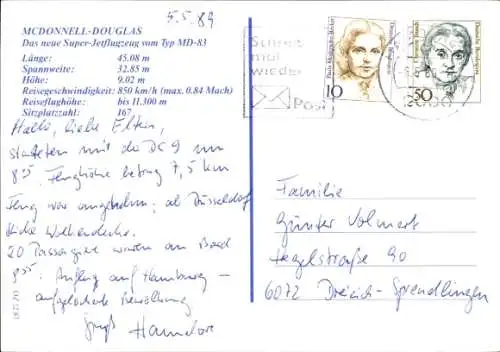 5.5.89
MCDONNELL-DOUGLAS
Das neue Super-Jetflugzeug vom Typ MD-83
Länge: 45.08 m
Spannweite: 32.85 m
Höhe: 9.02 m
Reisegeschwindigkeit: 850 km/h (max. 0.84 Mach)
Reiseflughöhe: bis 11.300 m
Sitzplatzzahl: 167
Hallo, liebe Eltern,
starteten mit der DC9 um
8⁰⁵. Flughöhe betrug 7,5 km
Flug war angenehm; ab Düsseldorf
dicke Wolkendecke.
20 Passagiere waren an Bord
8⁵⁵. Anflug auf Hamburg –
aufgelockerte Bewölkung
Gruß Hannelore
Schreib
mal
wieder
Post
10
50
Deutsche Bundespost
Familie
Günter Volmert
Hegelstraße 90
6072 Dreieich-Sprendlingen